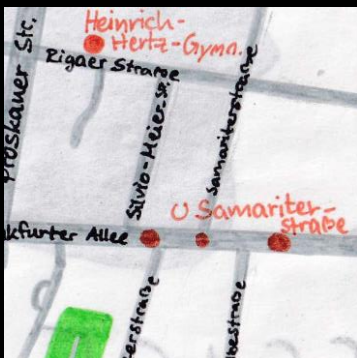 Heinrich-
Hertz-Gymn.
Rigaer Straße
Proskauer Str.
Silvio-Meier-Str.
Samariterstraße
U Samariter-
straße
kfurter Allee
erstraße
oestraße